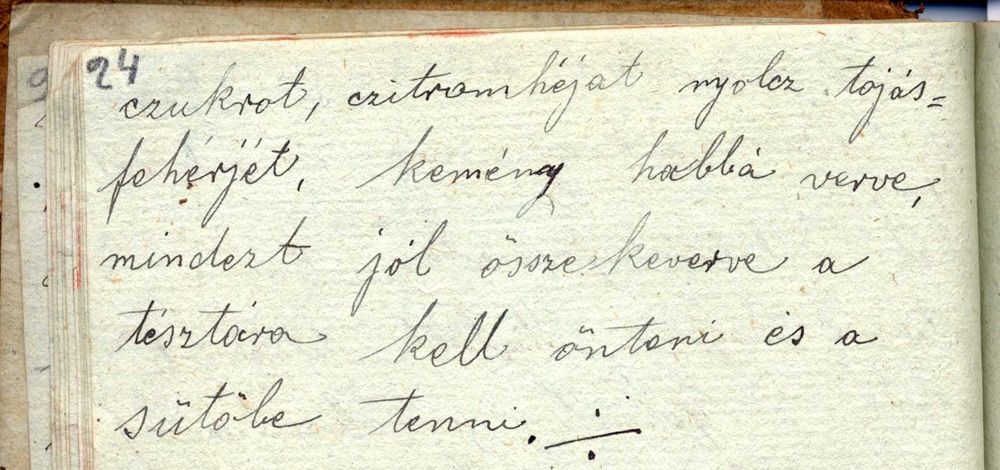 24
czukrot, czitromhéjat nyolcz tojás=
fehérjét, kemény habbá verve,
mindezt jól összekeverve a
tésztára kell önteni és a
sütőbe tenni.